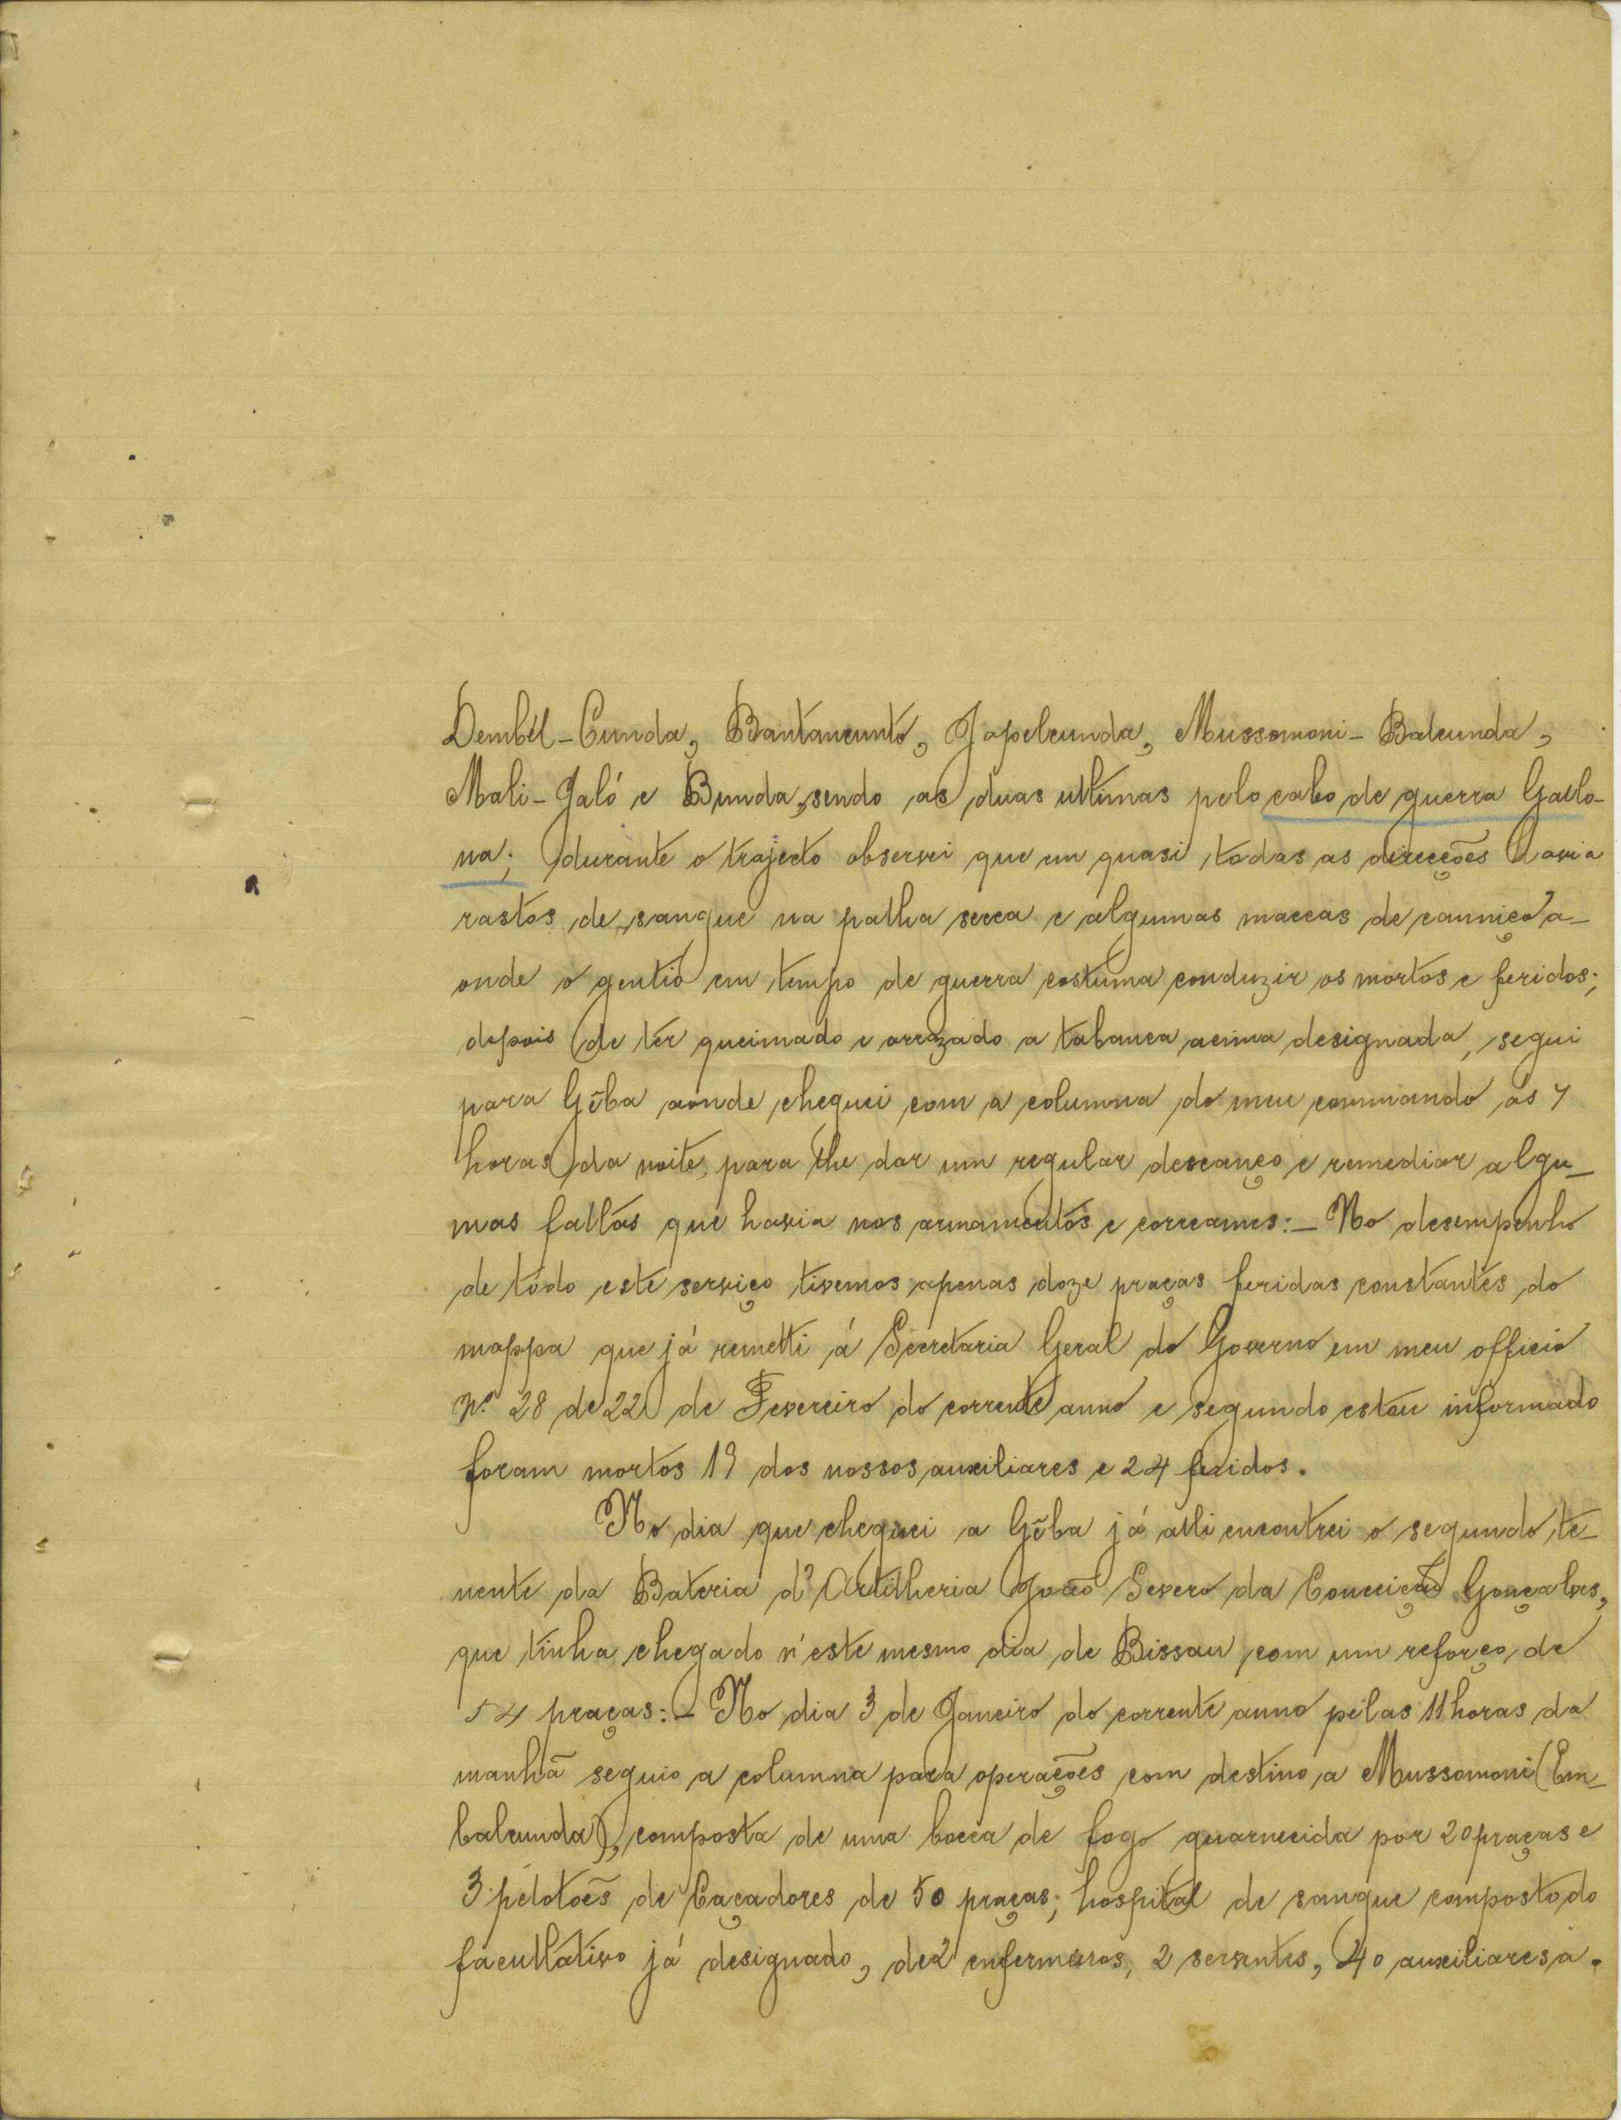 Dembél-Cunda, Bantancunto, Japelcunda, Mussomoni-Balcunda,
Mali-Jaló e Bunda, sendo as duas ultimas pelo cabo de guerra Gallo-
na; durante o trajecto observei que em quasi todas as direcções havia
rastos de sangue na palha secca e algumas maccas de canniço a-
onde o gentio em tempo de guerra costuma conduzir os mortos e feridos;
depois de ter queimado e arrazado a tabanca acima designada, segui
para Gêba aonde cheguei com a columna do meu commando ás 7
horas da noite, para lhe dar um regular descanço e remediar algu-
mas faltas que havia nos armamentos e correames:- No desempenho
de tôdo este serviço tivemos apenas doze praças feridas constantes do
mappa que já remetti á Secretaria Geral do Governo em meu officio
Nº 28 de 22 de Fevereiro do corrente anno e segundo estou informado
foram mortos 19 dos nossos auxiliares e 24 feridos.
No dia que cheguei a Gêba já alli encontrei o segundo te-
nente da Bateria d'Artilheria João Severo da Conceição Gonçalves,
que tinha chegado n'este mesmo dia de Bissau com um reforço de
54 praças:- No dia 3 de Janeiro do corrente anno pelas 11 horas da
manhã seguio a columna para operações com destino a Mussomoni (Em-
balcunda), composta de uma bocca de fogo guarnecida por 20 praças e
3 pelotões de Caçadores de 50 praças; hospital de sangue composto do
facultativo já designado, de 2 enfermeiros, 2 serventes, 40 auxiliares a.